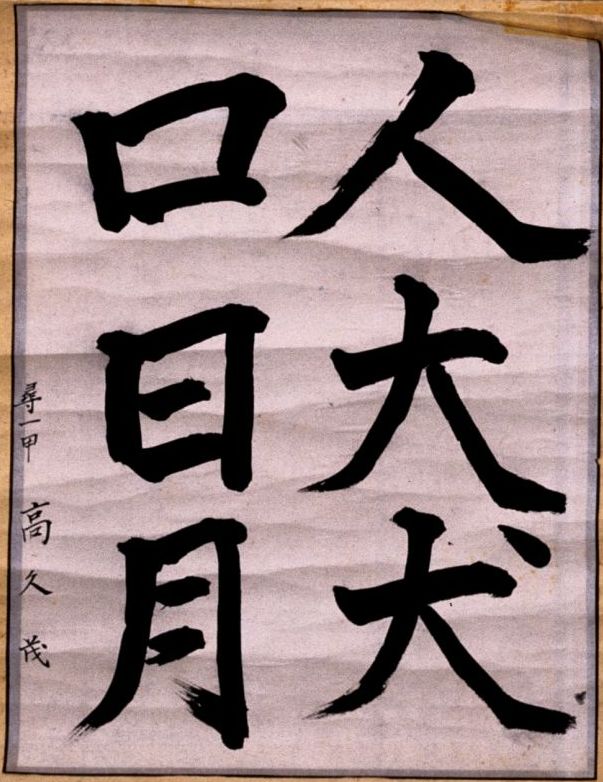 人大犬
口日月
尋一甲 高久茂